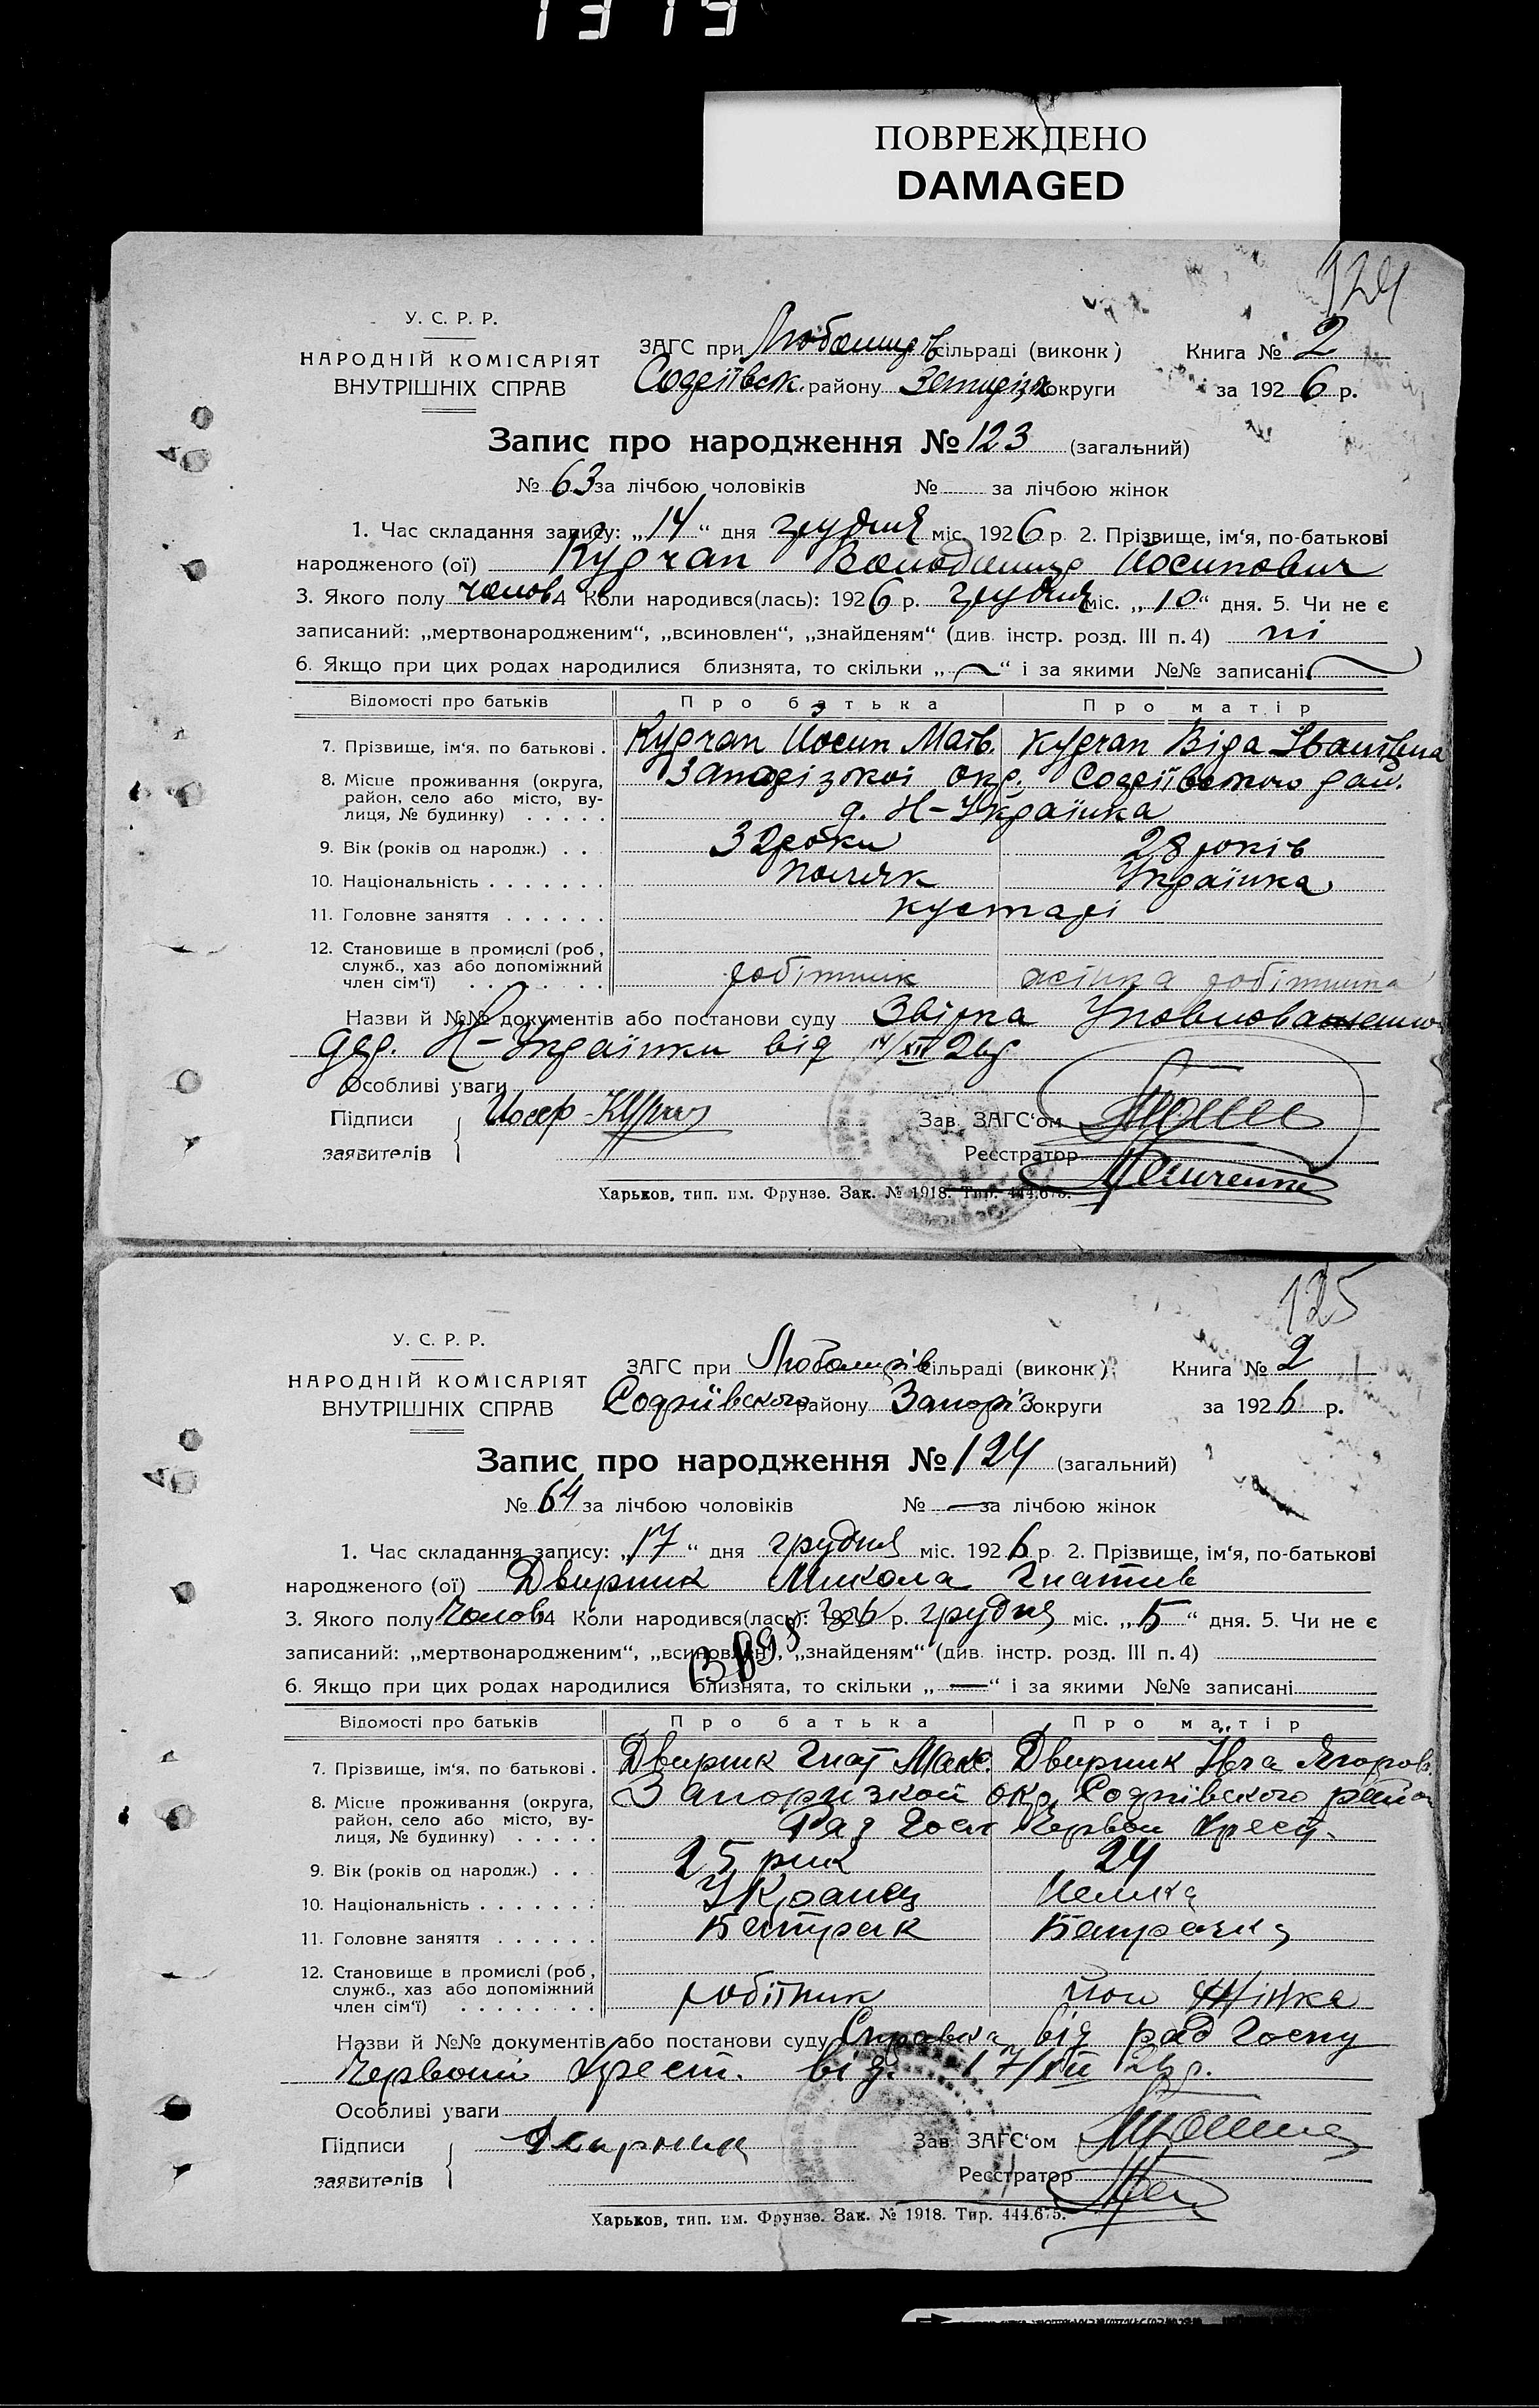 1319
ПОВРЕЖДЕНО
DAMAGED
124
У. С. Р. Р.
НАРОДНІЙ КОМІСАРІЯТ
ВНУТРІШНІХ СПРАВ
ЗАГС при сільраді (виконк) Книга № 2
району округи за 1926 р.
Запис про народження № 123 (загальний)
№ 63 за лічбою чоловіків № за лічбою жінок
1. Час складання запису: „14“ дня грудня міс. 1926 р. 2. Прізвище, ім‘я, по-батькові
народженого (ої) Володимир Йосипович
3. Якого полу чолов. 4 Коли народився(лась): 1926 р. грудня міс. „10“ дня. 5. Чи не є
записаний: „мертвонародженим“, „всиновлен“, „знайденям“ (див. інстр. розд. III п. 4) ні
6. Якщо при цих родах народилися близнята, то скільки „—“ і за якими №№ записані
Відомості про батьків Про батька Про матір
7. Прізвище, ім‘я, по батькові . Йосип Матв. Віра Іванівна
8. Місце проживання (округа, район, село або місто, вулиця, № будинку) . . . . . Запорізкої окр. рай.
Н-Українка
9. Вік (років од народж.) . . 32 роки 28 років
10. Національність . . . . . . . поляк Українка
11. Головне заняття . . . . . . кустарі
12. Становище в промислі (роб.,
служб., хаз або допоміжний
член сім‘ї) . . . . . . . . робітник жінка робітника
Назви й №№ документів або постанови суду
Н-Українки від 14/XII 26р.
Особливі уваги
Підписи Зав. ЗАГС‘ом
заявителів Реєстратор
Харьков, тип. им. Фрунзе. Зак. № 1918. Тир. 444.675.
125
У. С. Р. Р.
НАРОДНІЙ КОМІСАРІЯТ
ВНУТРІШНІХ СПРАВ
ЗАГС при сільраді (виконк) Книга № 2
району Запоріз округи за 1926 р.
Запис про народження № 124 (загальний)
№ 64 за лічбою чоловіків № — за лічбою жінок
1. Час складання запису: „17“ дня грудня міс. 1926 р. 2. Прізвище, ім‘я, по-батькові
народженого (ої) Двирник Микола Гнатив
3. Якого полу Чолов. 4 Коли народився(лась): 1926 р. грудня міс. „5“ дня. 5. Чи не є
записаний: „мертвонародженим“, „всиновлен“, „знайденям“ (див. інстр. розд. III п. 4)
6. Якщо при цих родах народилися близнята, то скільки „—“ і за якими №№ записані
Відомості про батьків Про батька Про матір
7. Прізвище, ім‘я, по батькові . Двирник Гнат Макс. Двирник Ївга
8. Місце проживання (округа, район, село або місто, вулиця, № будинку) . . . . . Запоризкой окр. район
Рад Госп Червон Крест.
9. Вік (років од народж.) . . . 25 рик 24
10. Національність . . . . . . . Украінец Немка
11. Головне заняття . . . . . . Батрак Батрачка
12. Становище в промислі (роб.,
служб., хаз або допоміжний
член сім‘ї) . . . . . . . . робітник його жінка
Назви й №№ документів або постанови суду Справка від рад госпу
Червоний Крест. від. 17/XII 26р.
Особливі уваги
Підписи Двирник Зав. ЗАГС‘ом
заявителів Реєстратор
Харьков, тип. им. Фрунзе. Зак. № 1918. Тир. 444.675.